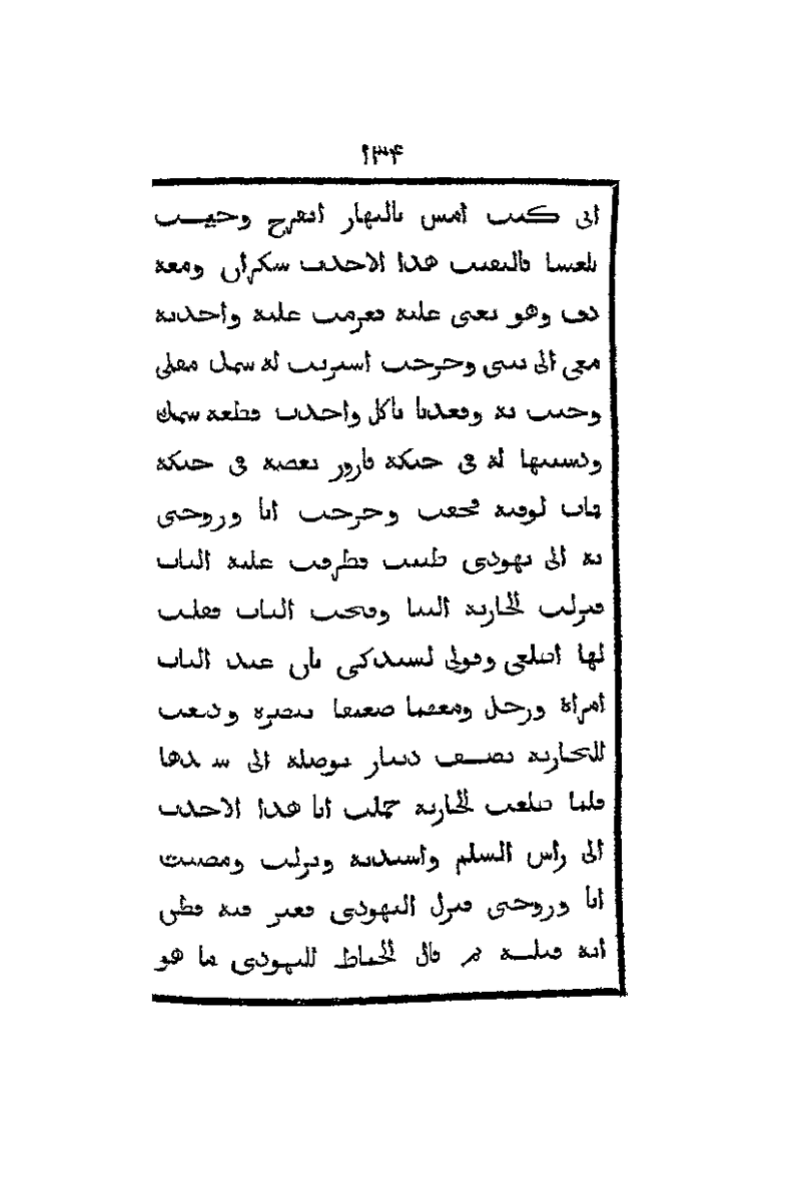 ١٣٤
اني كنت امس بالنهار اتفرج وجيت
بلعشا فالتقيت هذا الاحدب سكران ومعه
دف وهو يغني عليه فعرمت عليه واخذته
معي الى بيتي وخرجت اشتريت له سمك مقلي
وجيت به وقعدنا ناكل واخذت قطعه سمك
ودسيتها له في حنكه فازور بغصه في حنكه
مات لوقته فخفت وخرجت انا وزوجتي
به الى يهودي طبيب فطرقت عليه الباب
فنزلت الجاريه الينا وفتحت الباب فقلت
لها اطلعي وقولي لسيدكي بان عند الباب
امراة ورجل ومعهما ضعيفا تبصره ودفعت
للجاريه نصف دينار توصله الى سيدها
فلما طلعت الجاريه حملت انا هذا الاحدب
الى راس السلم واسندته ونزلت ومضيت
انا وزوجتي فنزل اليهودي فعثر فيه فظن
انه قتله ثم قال الخياط لليهودي ما هو